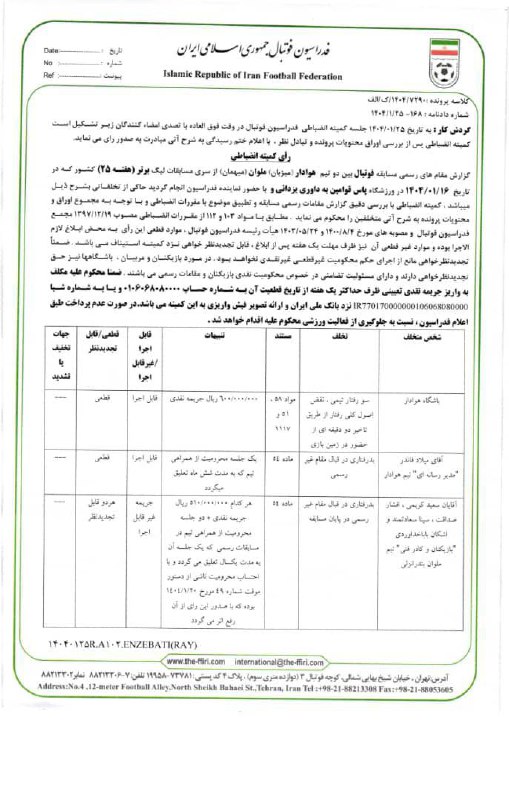 فدراسیون فوتبال جمهوری اسلامی ایران
Islamic Republic of Iran Football Federation
تاریخ : Date
شماره : No
پیوست : Ref
کلاسه پرونده : ۱۴۰۴/۷۲۹۰/ک/الف
شماره دادنامه : ۱۶۸- ۱۴۰۴/۱/۲۵
گردش کار : به تاریخ ۱۴۰۴/۰۱/۲۵ جلسه کمیته انضباطی فدراسیون فوتبال در وقت فوق العاده با تصدی امضاء کنندگان زیر تشکیل است
کمیته انضباطی پس از بررسی اوراق محتویات پرونده و تبادل نظر ، با اعلام ختم رسیدگی به شرح آتی مبادرت به صدور رای می نماید.
رأی کمیته انضباطی
گزارش مقام های رسمی مسابقه فوتبال بین دو تیم هوادار (میزبان) ملوان (میهمان) از سری مسابقات لیگ برتر (هفته ۲۵) کشور که در
تاریخ ۱۴۰۴/۰۱/۱۶ در ورزشگاه پاس قوامین به داوری یزدانی و با حضور نماینده فدراسیون انجام گردید حاکی از تخلفاتی بشرح ذیل
میباشد . کمیته انضباطی با بررسی دقیق گزارش مقامات رسمی مسابقه و تطبیق موضوع با مقررات انضباطی و با توجه به مجموع اوراق و
محتویات پرونده به شرح آتی متخلفین را محکوم می نماید . مطابق با مواد ۱۰۳ و ۱۱۲ از مقررات انضباطی مصوب ۱۳۹۷/۱۲/۱۹ مجمع
فدراسیون فوتبال و مصوبه های مورخ ۱۴۰۰/۸/۴ و ۱۴۰۳/۵/۲۴ هیأت رئیسه فدراسیون فوتبال ، موارد قطعی این رأی به محض ابلاغ لازم
الاجرا بوده و موارد غیر قطعی آن نیز ظرف مهلت یک هفته پس از ابلاغ ، قابل تجدیدنظر خواهی نزد کمیته استیناف می باشد. ضمناً
تجدیدنظرخواهی مانع از اجرای حکم محکومیت غیرقطعی غیرنقدی نخواهد بود . در صورد بازیکنان و مربیان ، باشگاهها نیز حق
تجدیدنظرخواهی دارند و دارای مسئولیت تضامنی در خصوص محکومیت نقدی بازیکنان و مقامات رسمی می باشند . ضمنا محکوم علیه مکلف
به واریز جریمه نقدی تعیینی ظرف حداکثر یک هفته از تاریخ قطعیت آن به شماره حساب ۰۱۰۶۰۶۸۰۸۰۰۰۰ و یا به شماره شبا
IR770170000000106068080000 نزد بانک ملی ایران و ارائه تصویر فیش واریزی به این کمیته می باشد،در صورت عدم پرداخت طبق
اعلام فدراسیون ، نسبت به جلوگیری از فعالیت ورزشی محکوم علیه اقدام خواهد شد .
شخص متخلف | تخلف | مستند | تنبیهات | قابل اجرا /غیرقابل اجرا | قطعی/قابل تجدیدنظر | جهات تخفیف یا تشدید
باشگاه هوادار | سو رفتار تیمی ، نقض اصول کلی رفتار از طریق تاخیر دو دقیقه ای از حضور در زمین بازی | مواد ۵۹ ، ۵۱ و | ۶۰۰/۰۰۰/۰۰۰ ریال جریمه نقدی | قابل اجرا | قطعی | ----
آقای میلاد قاندر "مدیر رسانه ای" تیم هوادار | بدرفتاری در قبال مقام غیر رسمی | ماده ۵۴ | یک جلسه محرومیت از همراهی تیم که به مدت شش ماه تعلیق میگردد | قابل اجرا | قطعی | ----
آقایان سعید کریمی ، افشار صداقت ، سینا سعادتمند و اشکان باباخداوردی "بازیکنان و کادر فنی" تیم ملوان بندرانزلی | بدرفتاری در قبال مقام غیر رسمی در پایان مسابقه | ماده ۵۴ | هر کدام ۵۱۰/۰۰۰/۰۰۰ ریال جریمه نقدی + دو جلسه محرومیت از همراهی تیم در مسابقات رسمی که یک جلسه آن به مدت یکسال تعلیق می گردد و با احتساب محرومیت ناشی از دستور موقت شماره ۴۹ مورخ ۱۴۰۴/۱/۲۰ بوده که با صدور این رای از آن رفع اثر می گردد | جریمه غیر قابل اجرا | هر دو قابل تجدیدنظر | ----
۱۴۰۴۰۱۲۵R.A۱۰۲.ENZEBATI(RAY)
www.the-ffiri.com international@the-ffiri.com
آدرس:تهران، خیابان شیخ بهایی شمالی، کوچه فوتبال ۳ (دوازده متری سوم) ، پلاک ۴ کد پستی : ۱۹۹۵۸-۷۳۷۸۱ تلفن: ۷-۸۸۲۱۳۳۰۶ نمابر:۸۸۲۱۳۳۰۲
Address:No.4 ,12-meter Football Alley,North Sheikh Bahaei St.,Tehran, Iran Tel:+98-21-88213308 Fax:+98-21-88053605